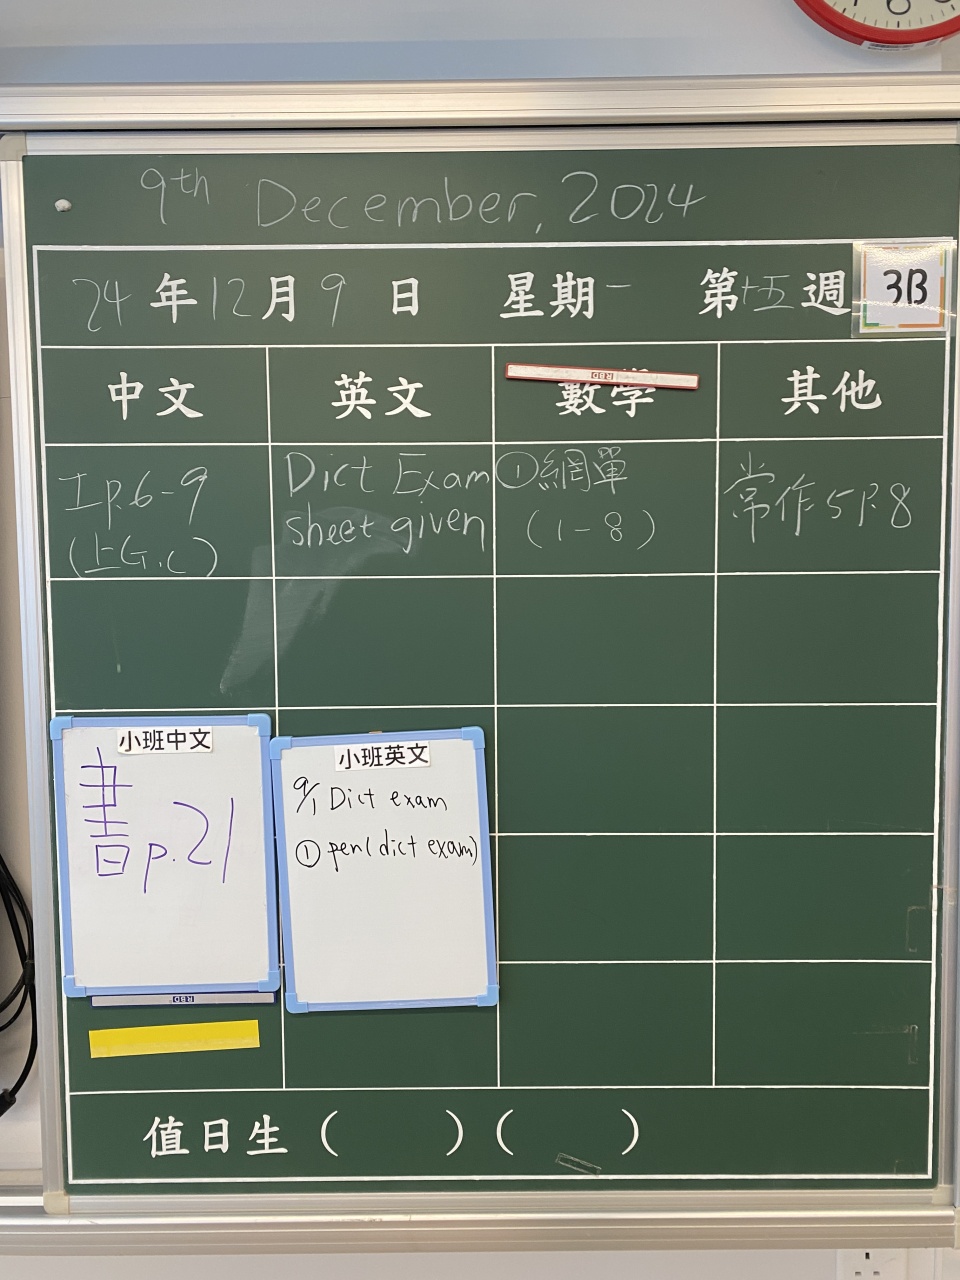 9th December, 2024
24年12月9日 星期一 第十五週 3B
中文 英文 數學 其他
Dict Exam
sheet given
①網單
(1-8)
常作5 P.8
I p.6-9
(上G.C)
小班中文
書p.21
小班英文
9/1 Dict exam
① pen(dict exam)
RBD
RBD
值日生( )( )